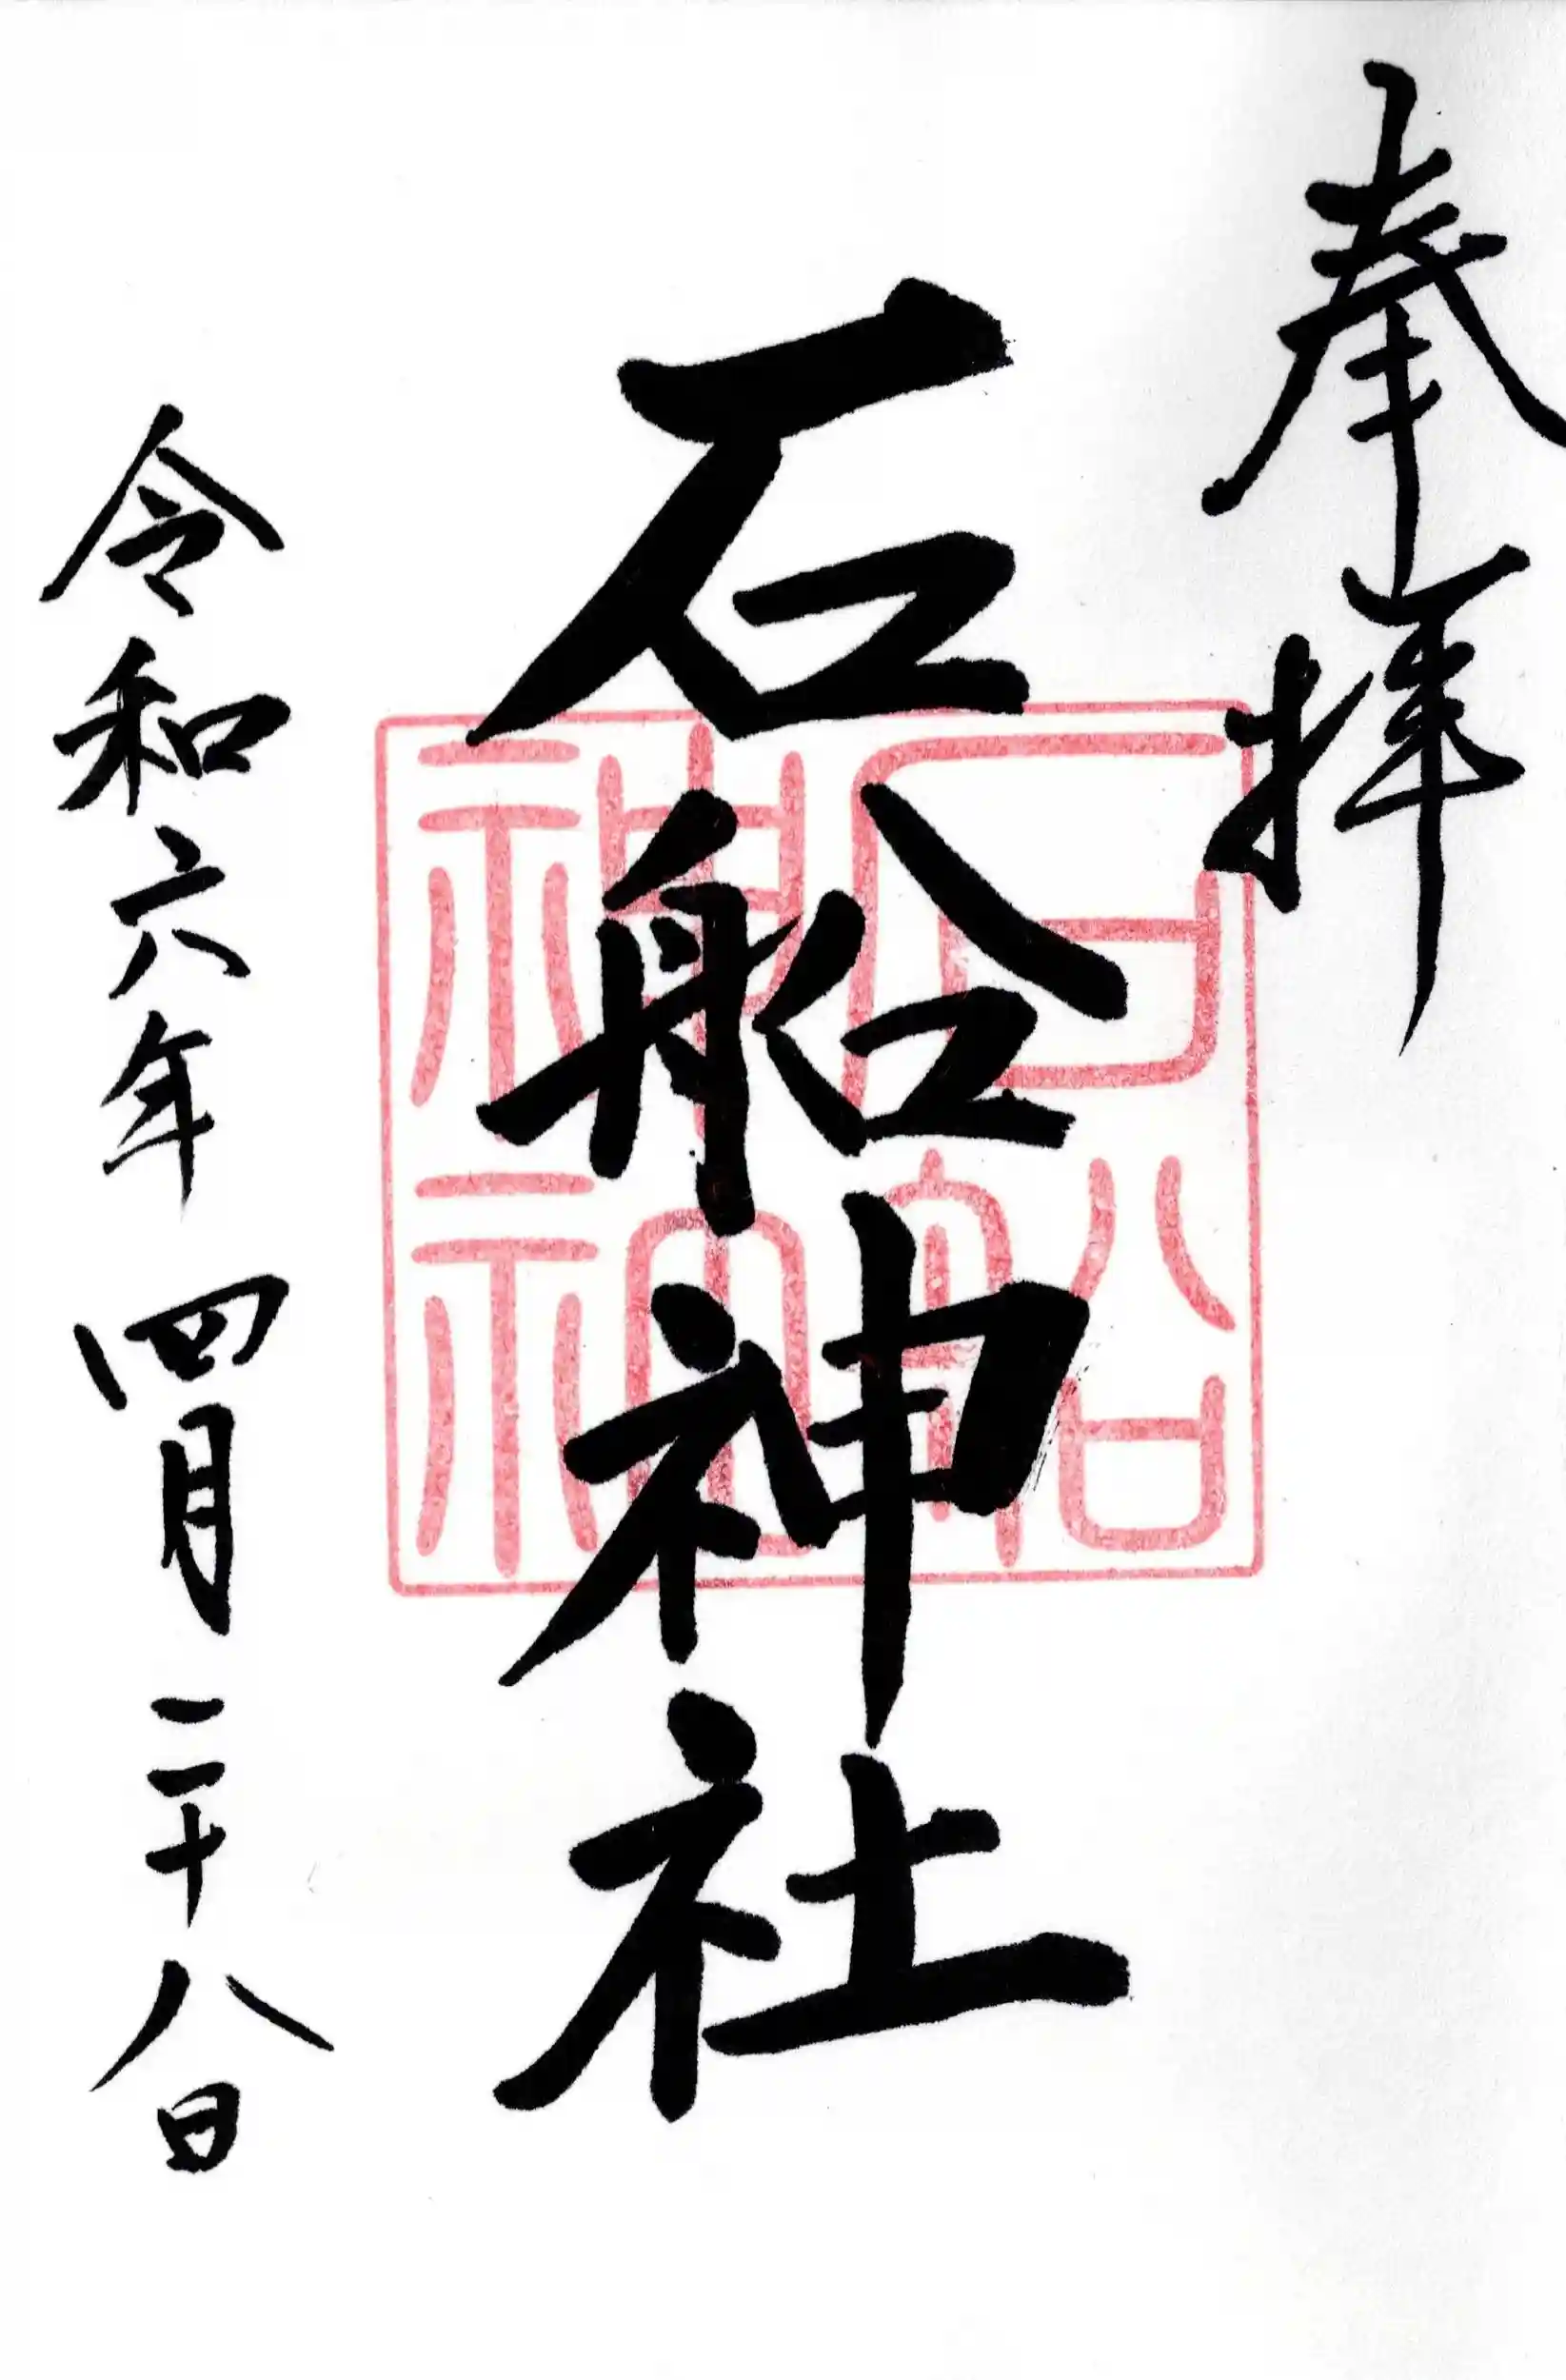 奉拝
石船神社
石船神社
令和六年四月二十八日